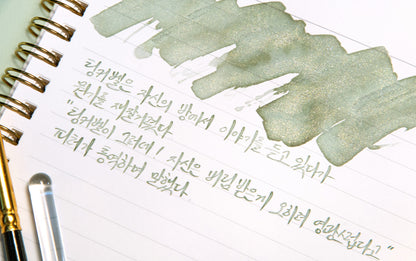 팅커벨은 자신의 방에서 이야기를 듣고 있다가
팬티를 제출시켰다
"팅커벨이 그러데! 자신은 버림 받은게 오히려 영광스럽다고"
피터가 통역하며 말했다